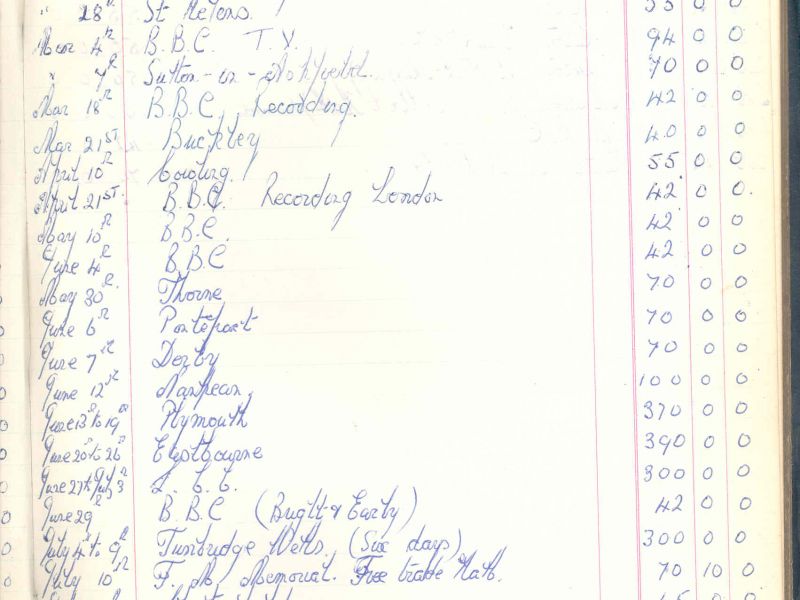 " 28th St Helens. 55 0 0
Mar 4th B.B.C. T.V. 94 0 0
" 7th Sutton-in-Ashfield. 70 0 0
Mar 18th B.B.C. Recording. 42 0 0
Mar 21st Buckley 40 0 0
April 10th 55 0 0
April 21st. B.B.C. Recording London 42 0 0.
May 10th B.B.C. 42 0 0
June 4th B.B.C 42 0 0
May 30th. Thorne 70 0 0
June 6th Pontefract 70 0 0
June 7th Derby 70 0 0
June 12th Nanpean. 100 0 0
June 13th to 19th Plymouth 370 0 0
June 20th to 26th Eastbourne 390 0 0
June 27th July 3rd L.C.C. 300 0 0
June 29th B.B.C (Bright & Early) 42 0 0
July 4th to 9th Tunbridge Wells. (Six days) 300 0 0
July 10th F. Memorial. Free trade Hall. 70 10 0